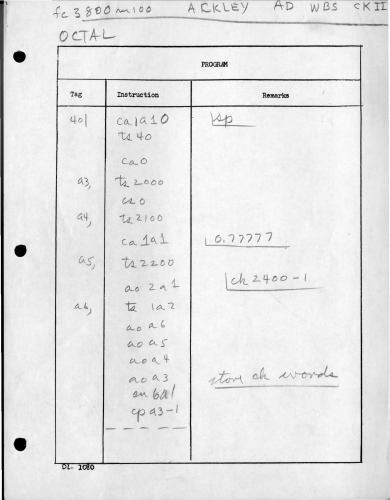 fc 3800 m100 ACKLEY AD WBS CK II
OCTAL
PROGRAM
Tag Instruction Remarks
40| ca 1a10 |sp
ts 40
ca 0
a3, ts 2000
cs 0
a4, ts 2100
ca 1a1 | 0.77777
a5, ts 2200
ao 2a1 |ck 2400-1
a6, ts 1a2
ao a6
ao a5
ao a4
ao a3 store ck words
su 6a1
cp a3-1
DL- 1080